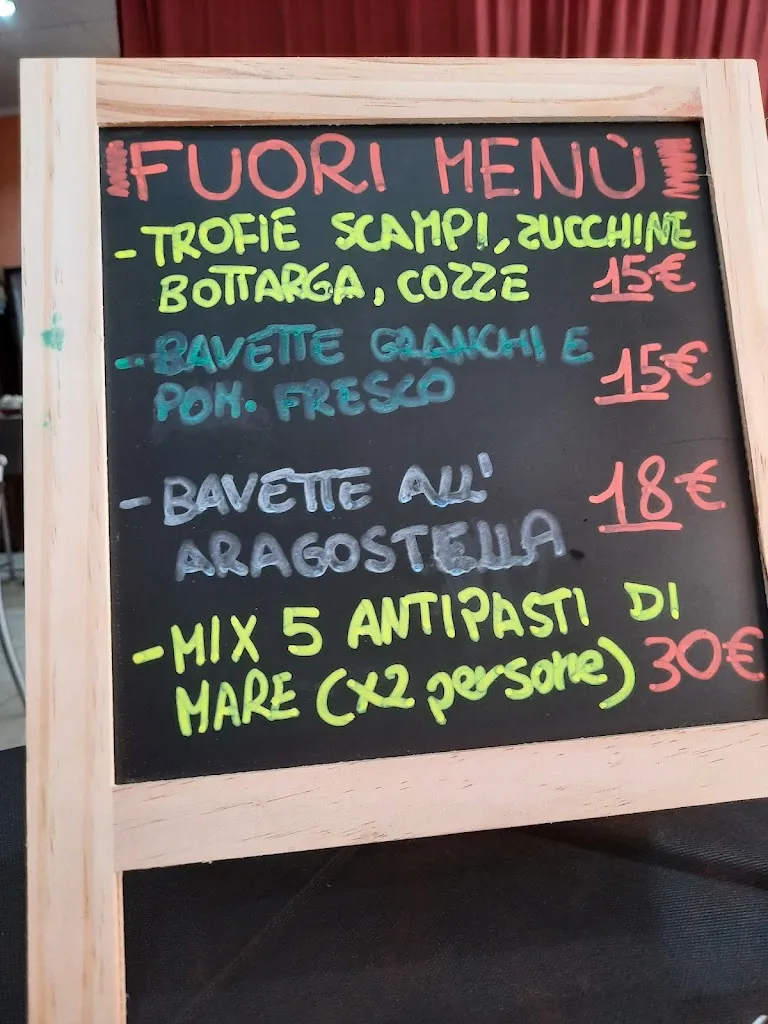 FUORI MENÙ
- TROFIE SCAMPI, ZUCCHINE
BOTTARGA, COZZE 15€
- BAVETTE GRANCHI E
POM. FRESCO 15€
- BAVETTE ALL'
ARAGOSTELLA 18€
- MIX 5 ANTIPASTI DI
MARE (x2 persone) 30€